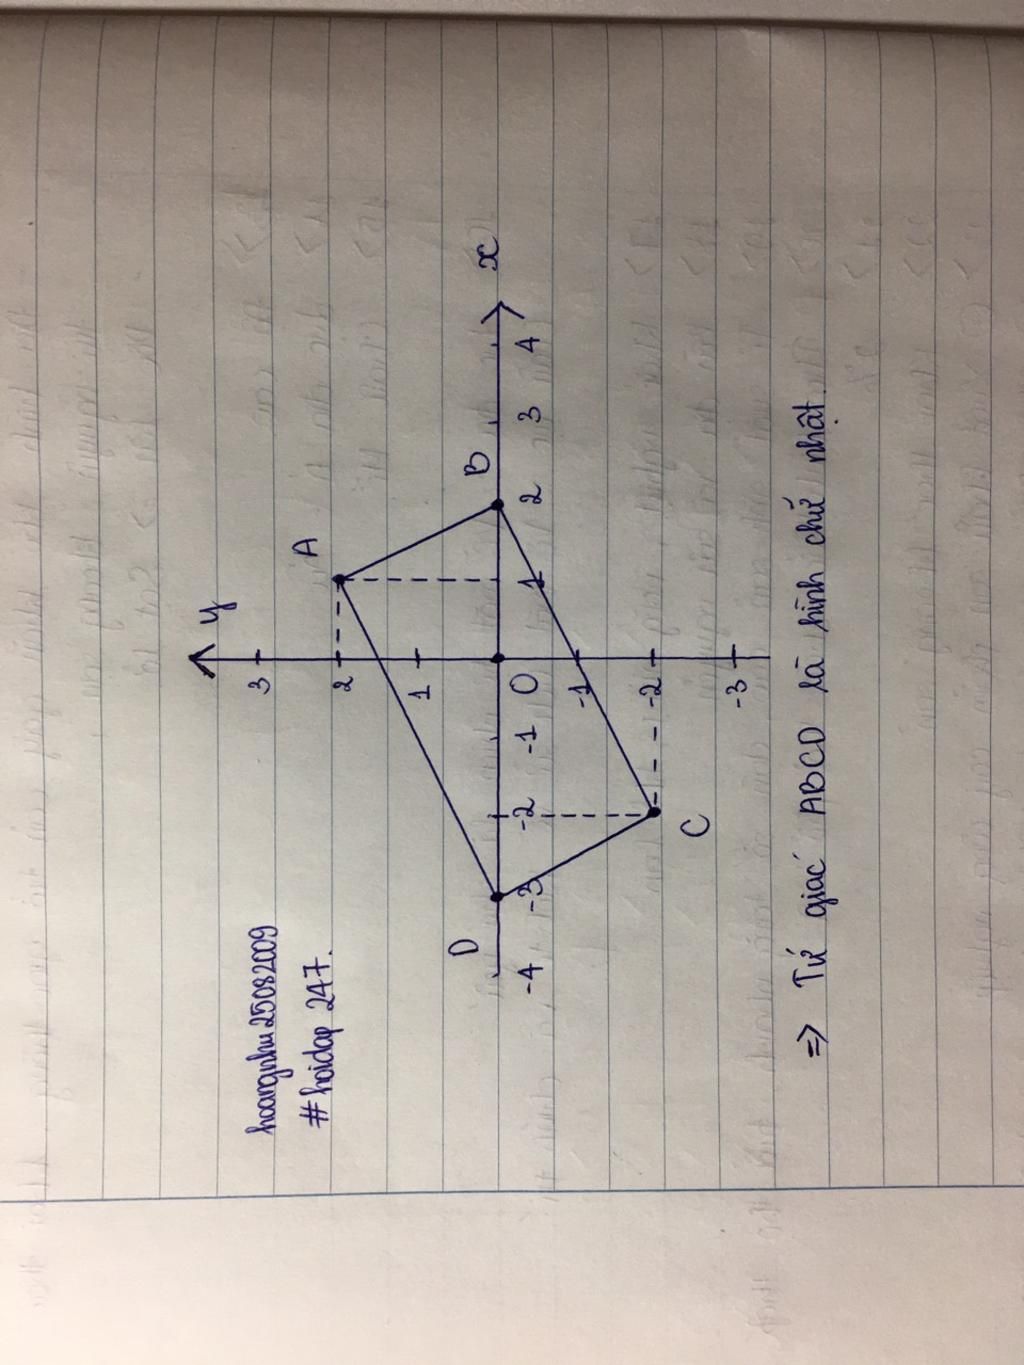 hoangnhu25082009
#hoidap 247.
y
3
A
2
1
D
B
x
-4
-3
-2
-1
O
1
2
3
4
-1
-2
C
-3
=> Tứ giác ABCD là hình chữ nhật.